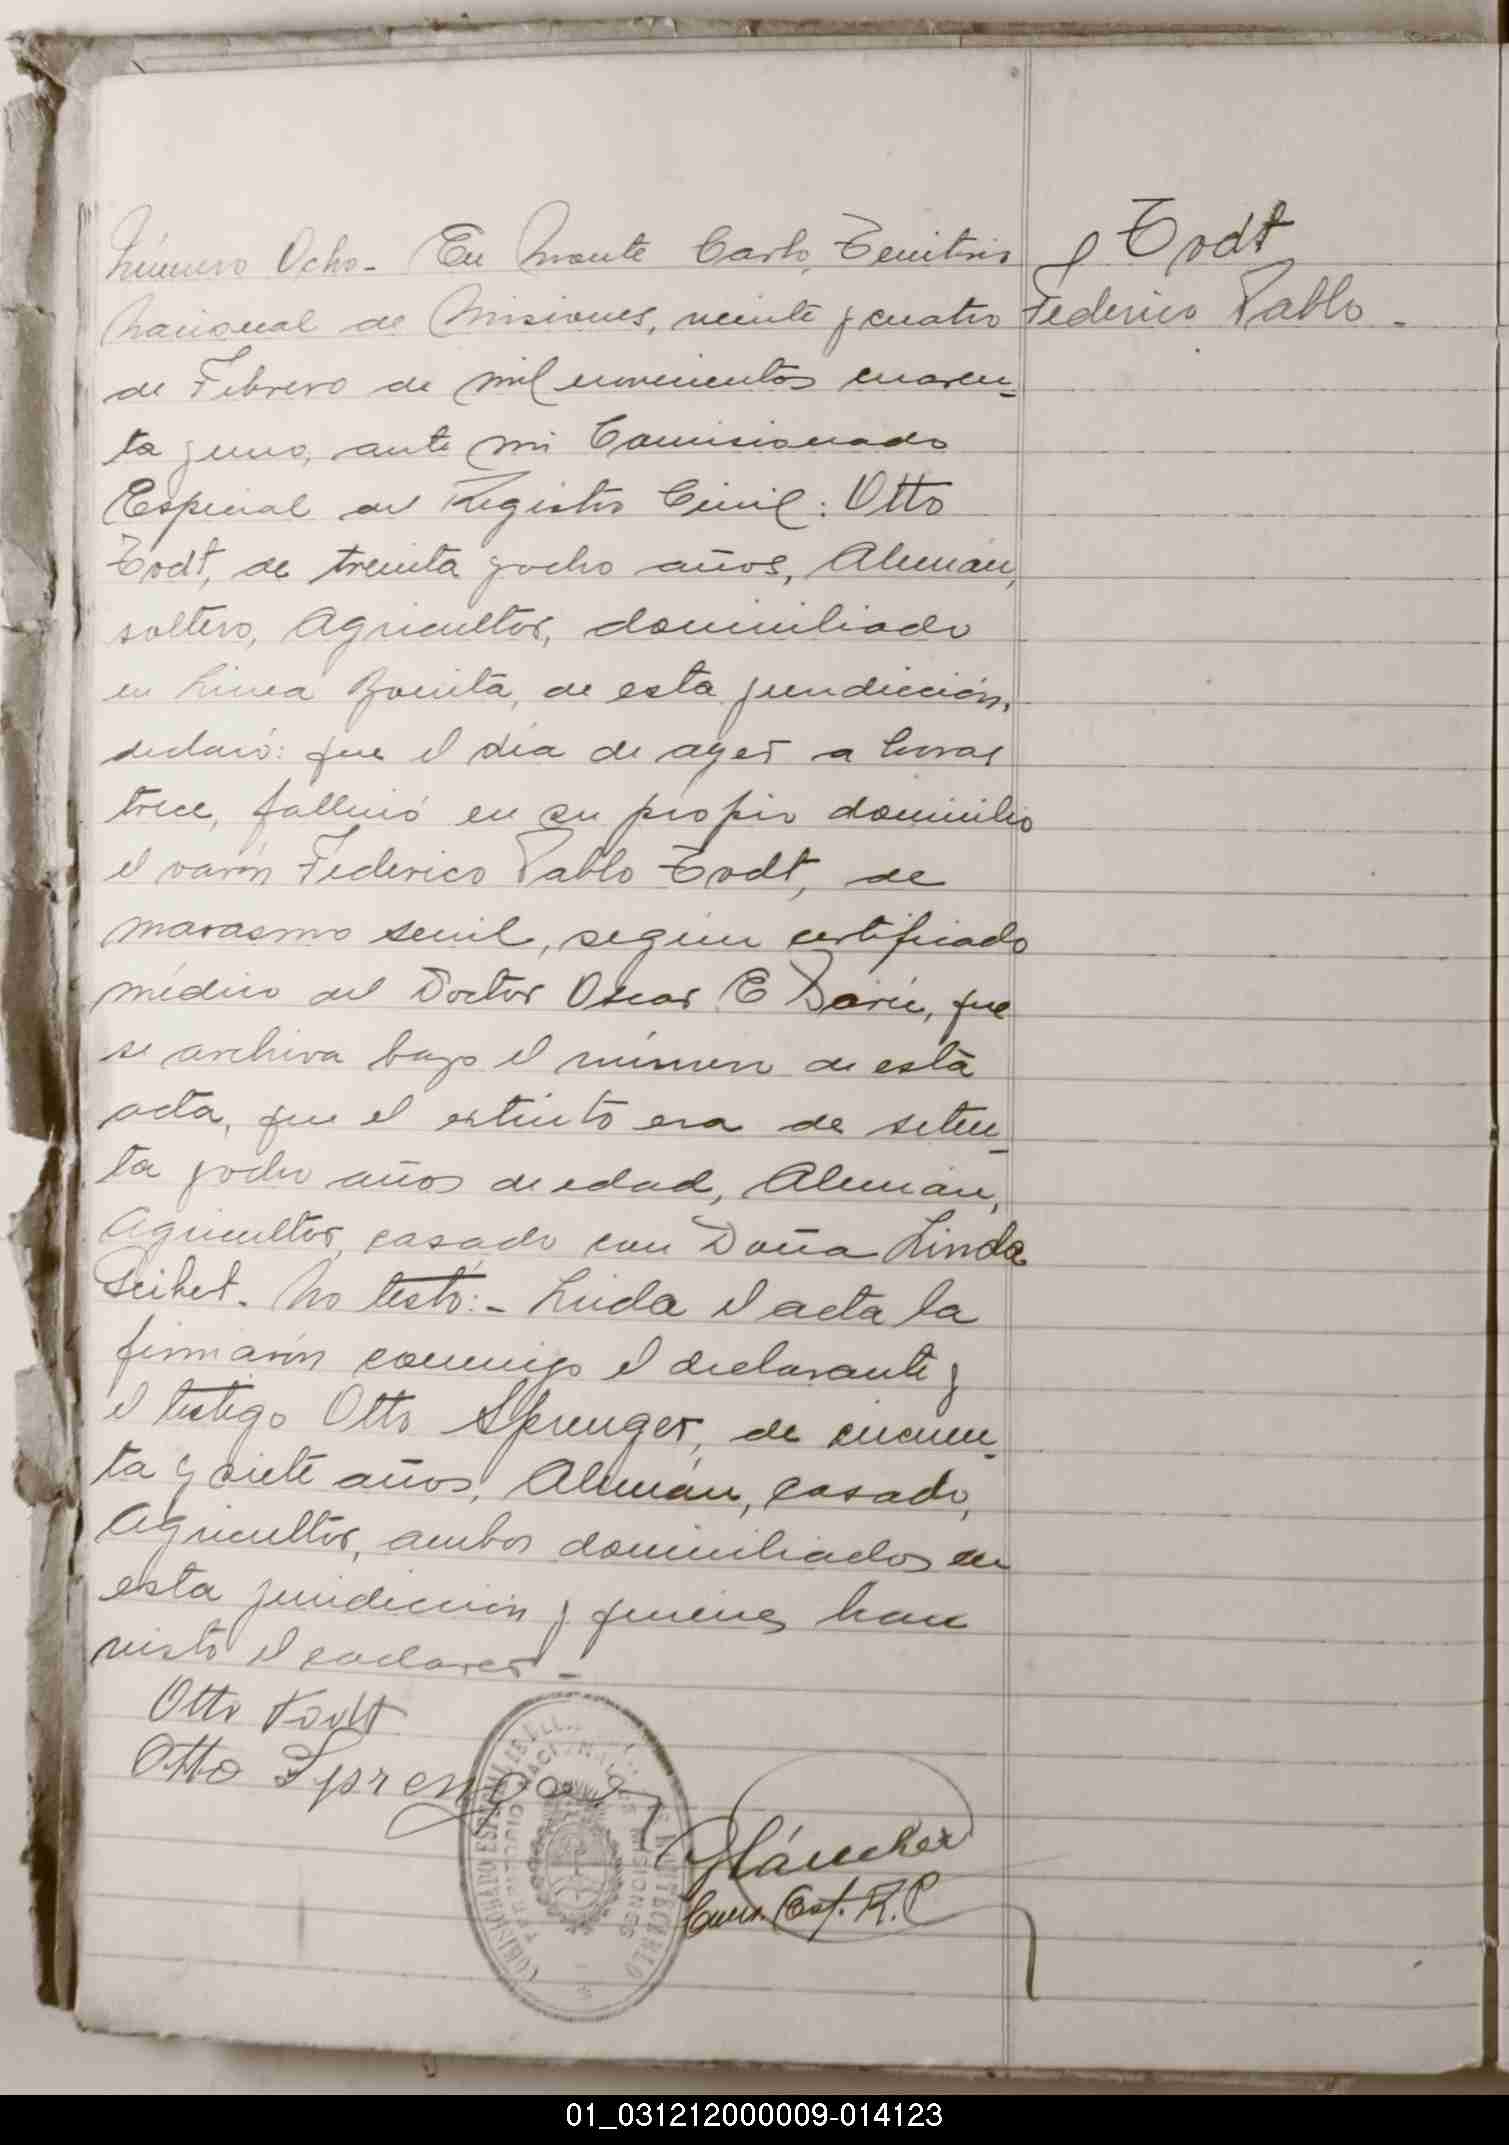 Número Ocho - En Monte Carlo, Territorio
Nacional de Misiones, veinte y cuatro
de Febrero de mil novecientos cuaren-
ta y uno, ante mi Comisionado
Especial del Registro Civil: Otto
Todt, de treinta y ocho años, Alemán,
soltero, Agricultor, domiciliado
en Linea Bonita, de esta jurisdicción,
declaró: que el día de ayer a horas
trece, falleció en su propio domicilio
el varón Federico Pablo Todt, de
marasmo senil, según certificado
médico del Doctor Oscar E Darú, que
se archiva bajo el número de esta
acta, que el extinto era de seten-
ta y ocho años de edad, Alemán,
Agricultor, casado con Doña Linda
Seibet. No testó: - Leída el acta la
firmarón conmigo el declarante y
el testigo Otto Sprenger, de cincuen-
ta y siete años, Alemán, casado,
Agricultor, ambos domiciliados en
esta jurisdicción y quienes han
visto el cadaver -
Todt
Federico Pablo -
Otto Todt
Otto Sprenger
Com. Esp. R. C
COMISIONADO ESPECIAL
TERRITORIO NACIONAL DE MISIONES
MONTECARLO
01_031212000009-014123